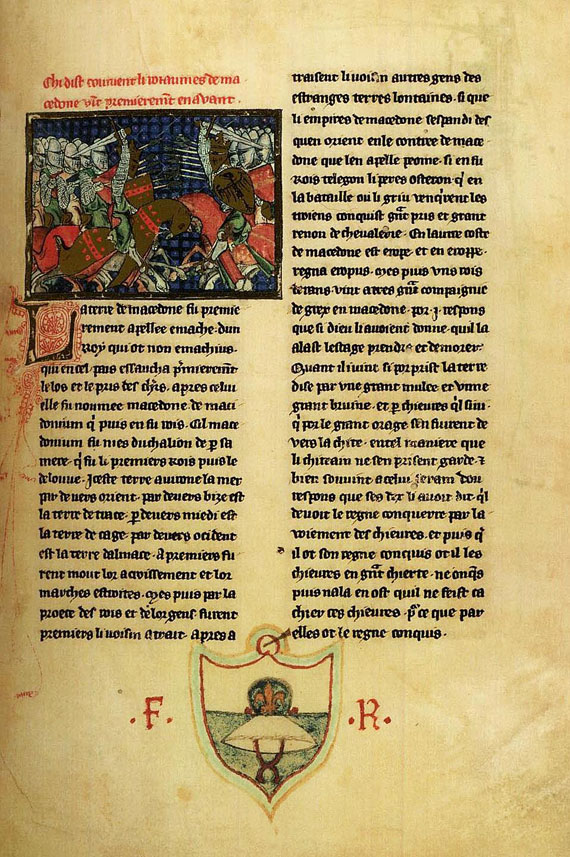 Chi dist comment li roiaumes de ma
cedone vīt premierem̄t en avant ·
La terre de macedone fu premie
rement apellee emache · dun
Roy qui ot non emachius ·
qui en cel pais essaucha p̄mierem̄t
le los et le pris des
apres celui
elle fu noumee macedone · de maci
donium q̄ puis en fu rois · Cil mace
donium fu nies duchalion de p̄ sa
mere · q̄ fu li premiers rois puis le
delouue · Iceste terre avirone la mer
par devers orient · par devers bize est
la terre de trace · p̄ devers miedi est
la terre de cage · par devers ocident
est la terre dalmace · A premiers fu
rent mout lor acroissement et lor
marches estroites · Mes puis par la
proece des rois et de lor gens furent
premiers li voisin atrait · Apres a
traisent li voisin autres gens des
estranges terres lontaines · si que
li empires de macedone sespandi des
quen orient · en le contree de mace
done que len apelle peonie · si en fu
Rois telegon li peres osteron · q̄ en
la bataille ou li griu venq̄rent les
troiens conquist gn̄t pris et grant
renon de chevalerie · En lautre coste
de macedone est erope · et en eroppe ·
regna eropus · Mes puis uns rois
vint a tres gn̄t compaignie
de gresse en macedone · por · j · respons
que si dieu li avoient donne · quil la
alast lestage prendre et demorer ·
Quant il vint si porprist la terre
dise par une grant mulee et
grant bruine · et p̄ chieures q̄l siui ·
q̄ por le grant orage sen fuirent de
vers la chite · en tel maniere que
li chiteain ne sen prisent garde · ⁊
bien souvint a celui seran dou
respons que ses dex li avoit dit q̄l
devoit le regne conquerre par la
voiement des chieures · et puis q̄
il ot son regne conquis ot il les
chieures en gn̄t chierte · ne onq̄s
puis nala en ost quil ne feist ca
chier ces chieures · p̄ ce que par
elles ot le regne conquis ·
· F · · R ·